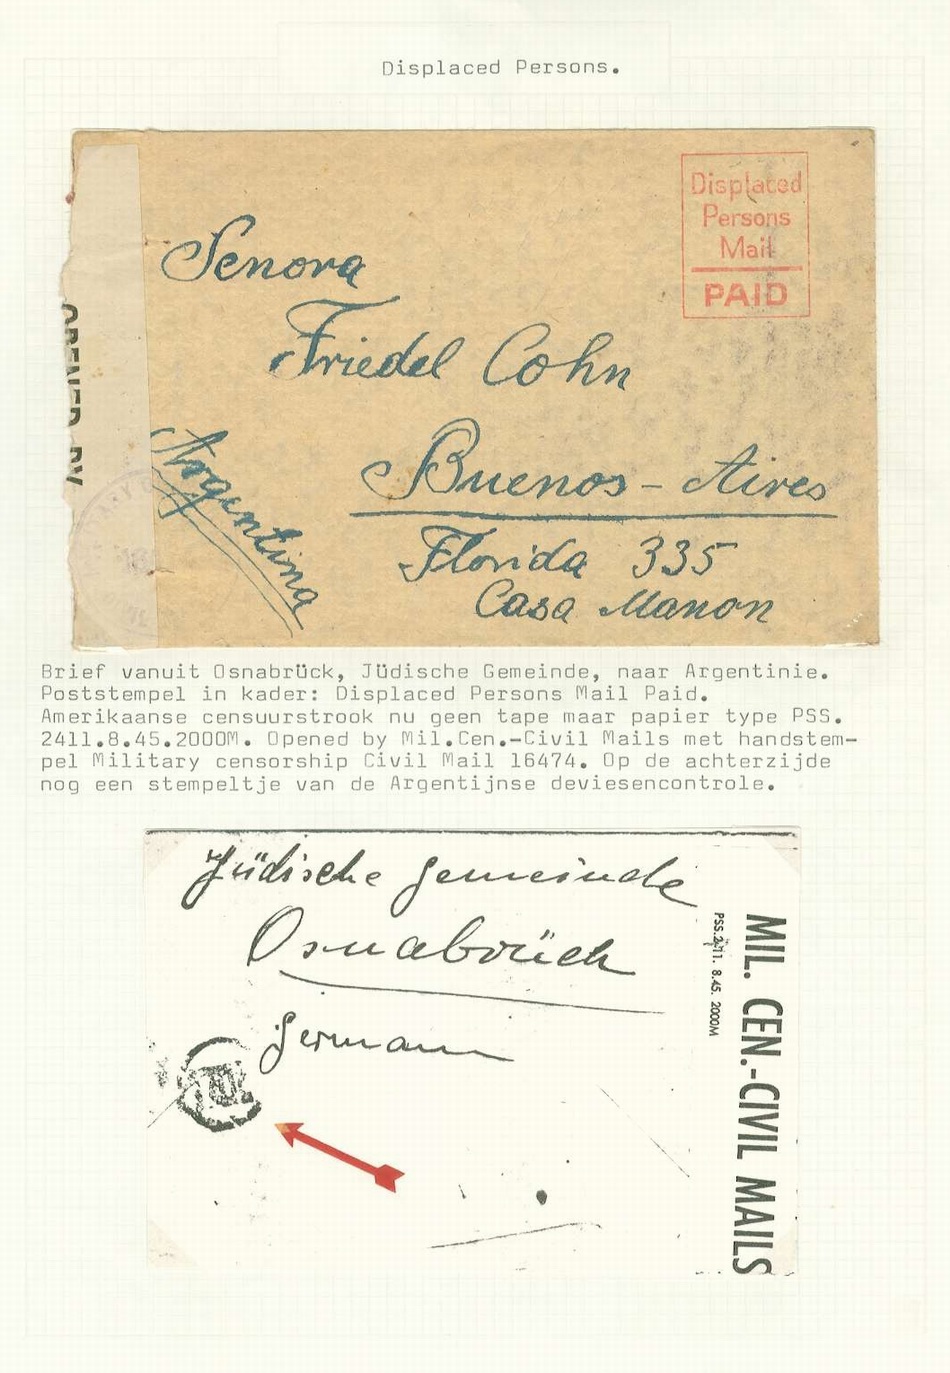 Displaced Persons.
Displaced
Persons
Mail
PAID
Senora
Friedel Cohn
Buenos-Aires
Florida 335
Casa Manon
Argentina
OPENED BY
Brief vanuit Osnabrück, Jüdische Gemeinde, naar Argentinie.
Poststempel in kader: Displaced Persons Mail Paid.
Amerikaanse censuurstrook nu geen tape maar papier type PSS.
2411.8.45.2000M. Opened by Mil.Cen.-Civil Mails met handstem-
pel Military censorship Civil Mail 16474. Op de achterzijde
nog een stempeltje van de Argentijnse deviesencontrole.
Jüdische Gemeinde
Osnabrück
Germann
PSS.2411. 8.45. 2000M
MIL. CEN.-CIVIL MAILS